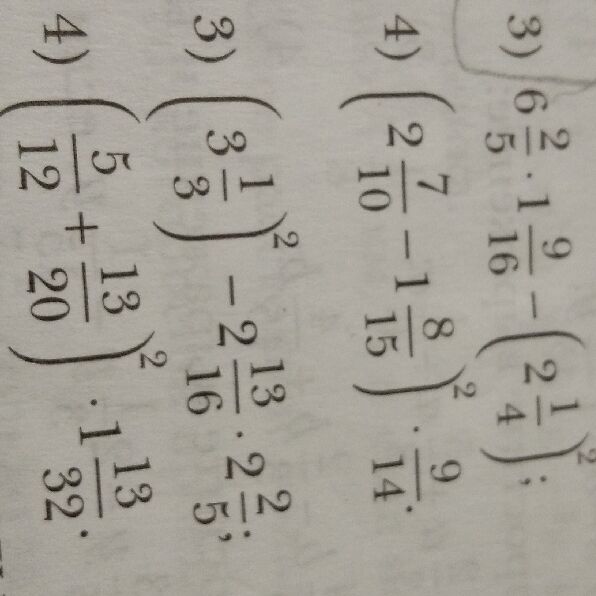 3) 6 2/5 · 1 9/16 − (2 1/4)²;
4) (2 7/10 − 1 8/15)² · 9/14.
3) (3 1/3)² − 2 13/16 · 2 2/5;
4) (5/12 + 13/20)² · 1 13/32.